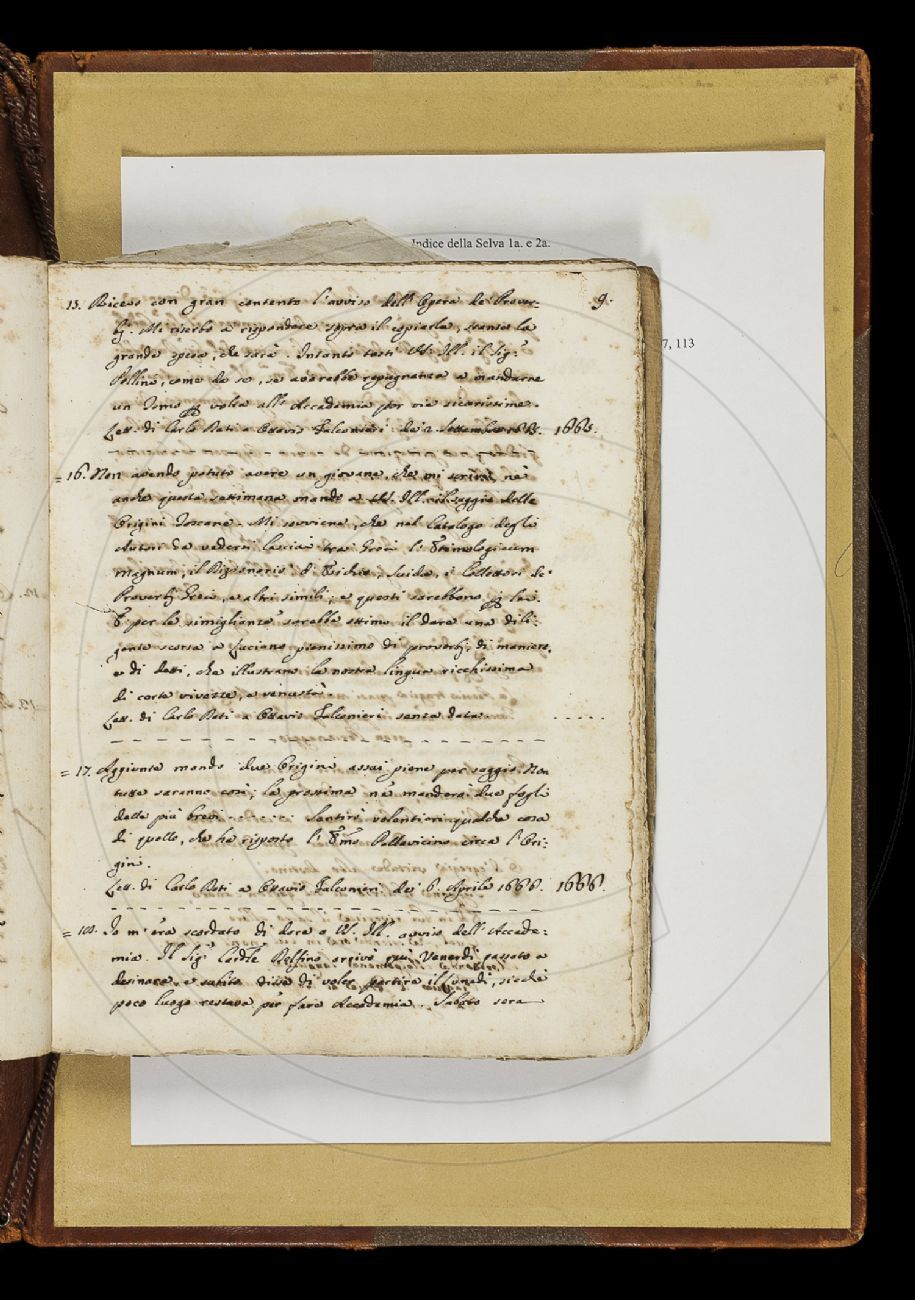 Indice della Selva 1a. e 2a.
7, 113
9.
15. Ricevo con gran contento l'avviso dell'Opera de' Prover-
bj. Mi riserbo a rispondere sopra il copiarla, stante la
grande spesa, che sarà. Intanto tasti V. S. Ill. il Sig.r
Pollini, come da se, se averebbe repugnanza a mandarne
un Tomo p volta all'Accademia per via sicurissima.
Lett. di Carlo Dati a Ottavio Falconieri de' 2. Settembre 1665. 1665.
= 16. Non avendo potuto avere un giovane, che mi scrive, nè
anche questa settimana mando a V. S. Ill. il saggio delle
Origini Toscane. Mi sovviene, che nel Catalogo degli
Autori da vedersi lasciai tra' Greci l'Etimologicum
magnum, il Dizionario d'Esichio, Suida, i Collettori de'
Proverbj Greci, e altri simili; e questi sarebbono p lei.
E per le simiglianze sarebbe ottimo il dare una dili-
gente scorsa a Luciano pienissimo di proverbj, di maniere,
e di detti, che illustrano la nostra lingua ricchissima
di certe vivezze, e venustà.
Lett. di Carlo Dati a Ottavio Falconieri senza data. . . . . .
= 17. Aggiunte mando due Origini assai piene per saggio. Non
tutte saranno così; la prossima ne manderò due fogli
delle più brevi. Sentirò volentieri qualche cosa
di quello, che ha risposto l'Emo Pallavicino circa l'Ori-
gini.
Lett. di Carlo Dati a Ottavio Falconieri de' 6. Aprile 1666. 1666.
= 18. Io m'era scordato di dare a V. S. Ill. avviso dell'Accade-
mia. Il Sig. Cardle Delfino arrivò qui Venerdì passato a
desinare, e subito disse di voler partire il Lunedì, sicchè
poco luogo restava per fare Accademia. Sabato sera